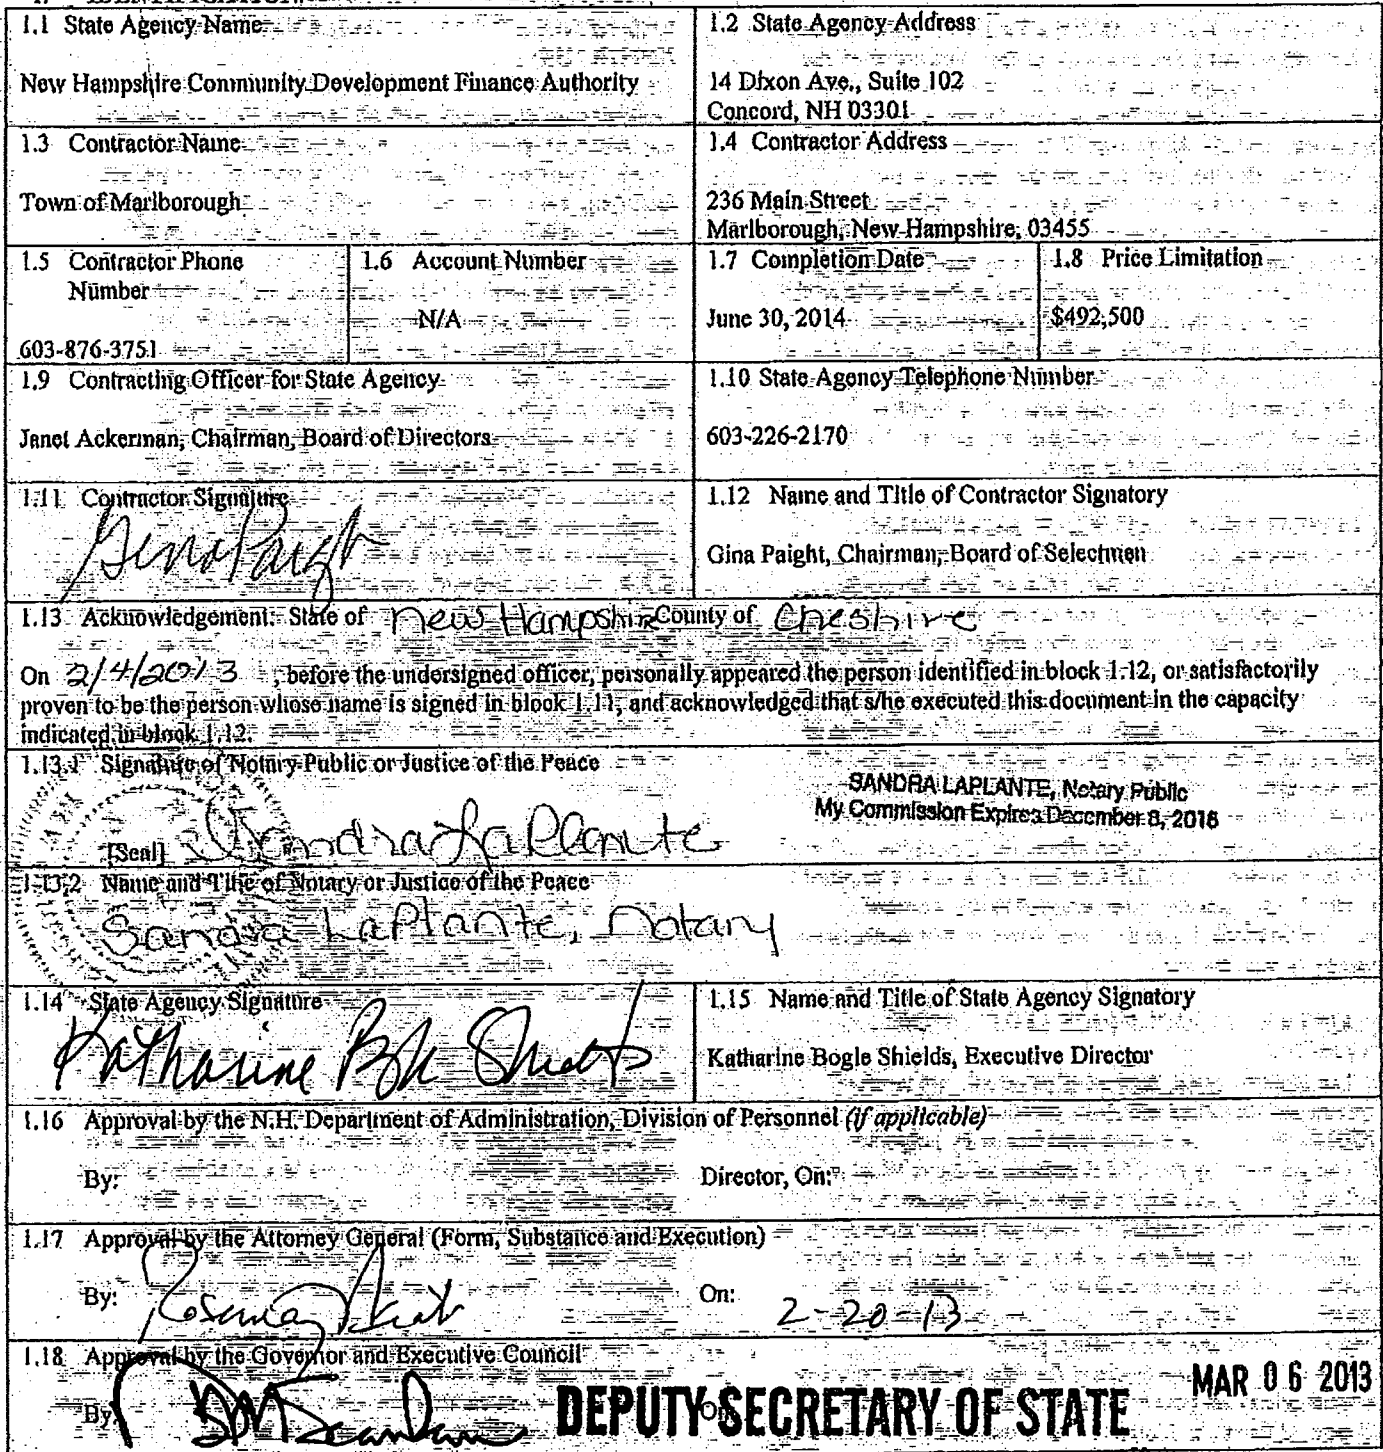 1.1 State Agency Name
New Hampshire Community Development Finance Authority
1.2 State Agency Address
14 Dixon Ave., Suite 102
Concord, NH 03301
1.3 Contractor Name
Town of Marlborough
1.4 Contractor Address
236 Main Street
Marlborough, New Hampshire, 03455
1.5 Contractor Phone
Number
603-876-3751
1.6 Account Number
N/A
1.7 Completion Date
June 30, 2014
1.8 Price Limitation
$492,500
1.9 Contracting Officer for State Agency
Janet Ackerman, Chairman, Board of Directors
1.10 State Agency Telephone Number
603-226-2170
1.11 Contractor Signature
Gina Paight
1.12 Name and Title of Contractor Signatory
Gina Paight, Chairman, Board of Selectmen
1.13 Acknowledgement: State of New Hampshire County of Cheshire
On 2/4/2013, before the undersigned officer, personally appeared the person identified in block 1.12, or satisfactorily
proven to be the person whose name is signed in block 1.11, and acknowledged that s/he executed this document in the capacity
indicated in block 1.12.
1.13.1 Signature of Notary Public or Justice of the Peace
SANDRA LAPLANTE, Notary Public
My Commission Expires December 8, 2016
[Seal] Sandra LaPlante
1.13.2 Name and Title of Notary or Justice of the Peace
Sandra LaPlante, Notary
1.14 State Agency Signature
Katharine Bogle Shields
1.15 Name and Title of State Agency Signatory
Katharine Bogle Shields, Executive Director
1.16 Approval by the N.H. Department of Administration, Division of Personnel (if applicable)
By: Director, On:
1.17 Approval by the Attorney General (Form, Substance and Execution)
By: On: 2-20-13
1.18 Approval by the Governor and Executive Council
By: DEPUTY SECRETARY OF STATE On: MAR 06 2013